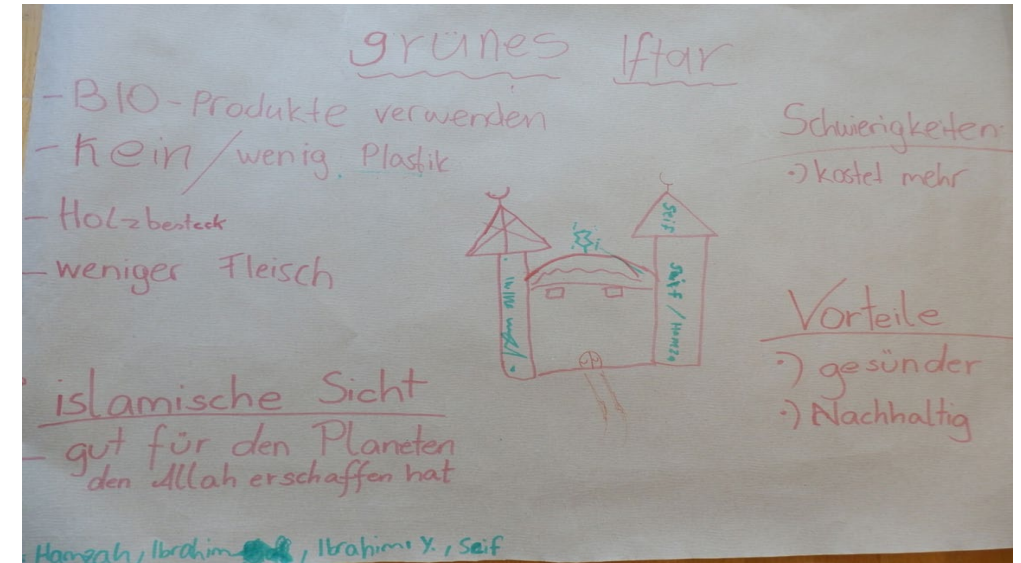 grünes Iftar
- BIO-Produkte verwenden
- Kein/wenig Plastik
- Holzbesteck
- weniger Fleisch
islamische Sicht
- gut für den Planeten
den Allah erschaffen hat
Schwierigkeiten:
·) kostet mehr
Vorteile
·) gesünder
·) Nachhaltig
Seif
Seif / Hamza
Hamzah, Ibrahim, Ibrahim Y., Seif